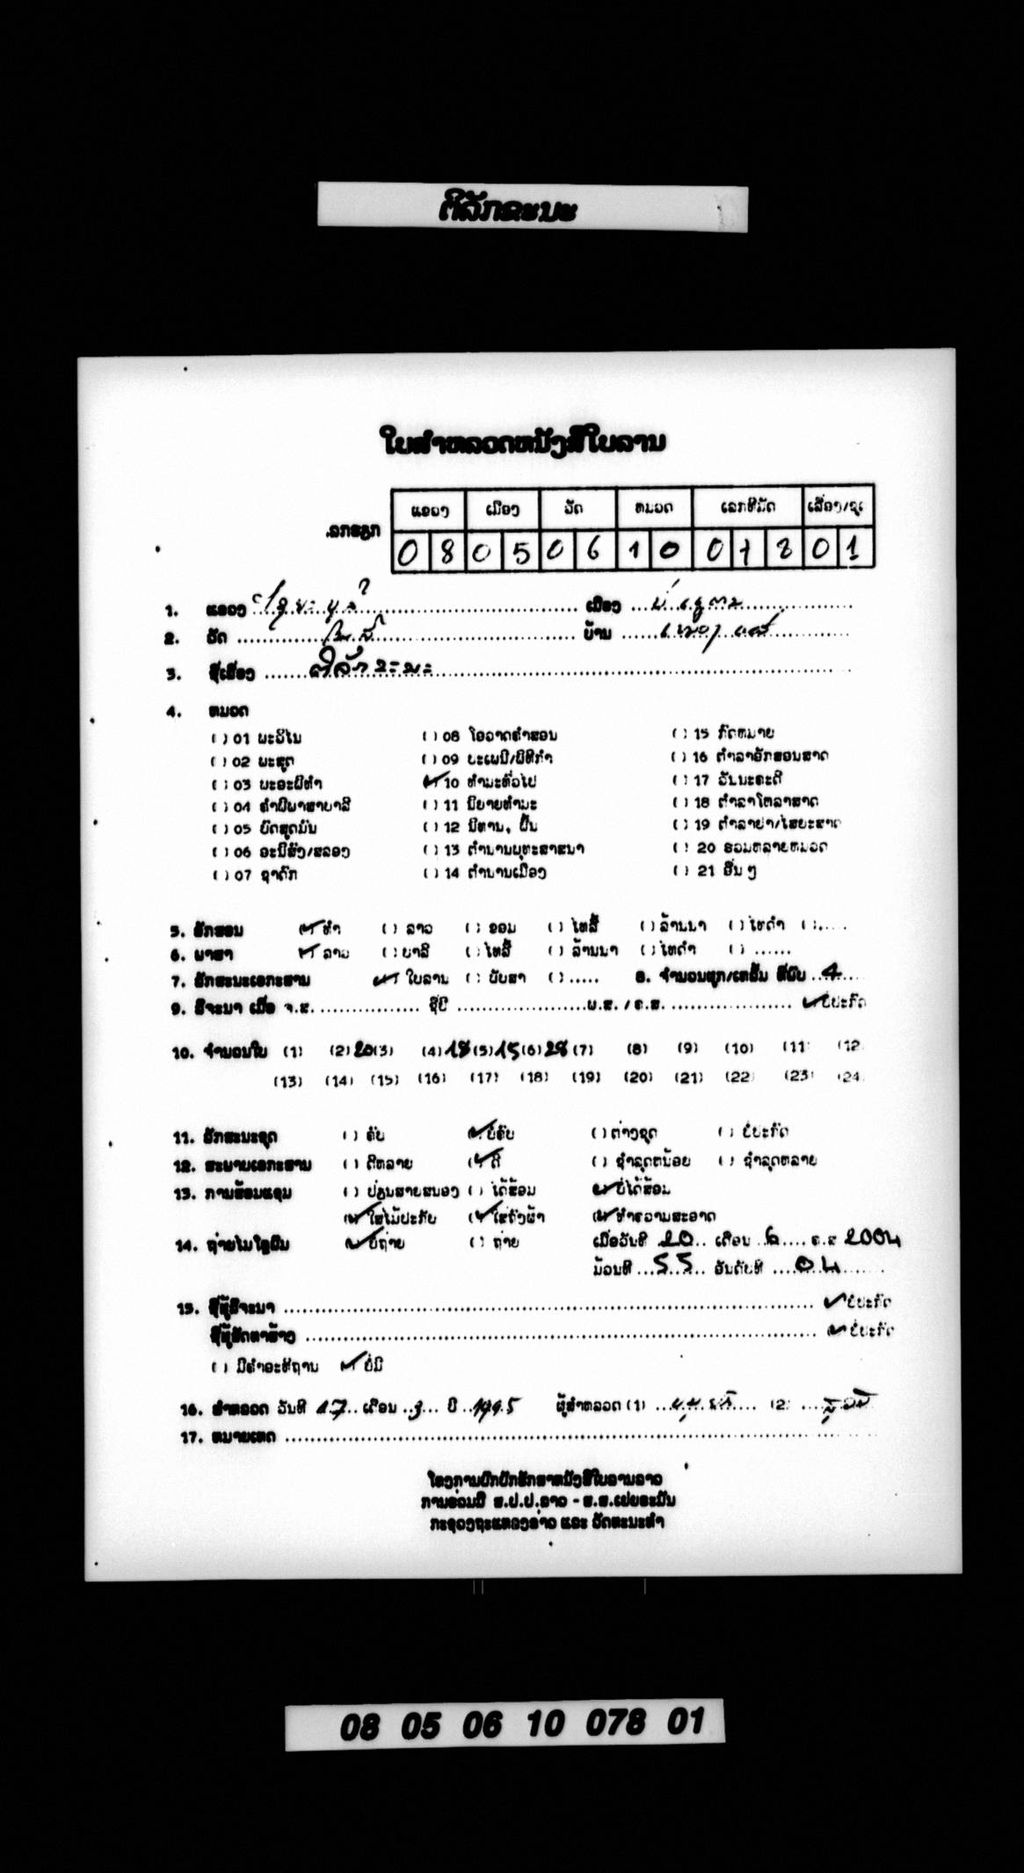 ຕີລັກຂະນະ
ໃບສຳຫລວດຫນັງສືໃບລານ
ແຂວງ ເມືອງ ວັດ ຫມວດ ເລກທີມັດ ເລື່ອງ/ຊຸ
ເລກລະຫັດ 0 8 0 5 0 6 1 0 0 7 8 0 1
1. ແຂວງ ໄຊຍະບູລີ ເມືອງ ບໍ່ແຕນ
2. ວັດ ໂພສີ ບ້ານ
3. ຊື່ເລື່ອງ ຕີລັກຂະນະ
4. ຫມວດ
( ) 01 ພະວິໄນ ( ) 08 ໂອວາດຄຳສອນ ( ) 15 ກົດຫມາຍ
( ) 02 ພະສູດ ( ) 09 ປະເພນີ/ພິທີກຳ ( ) 16 ຕຳລາອັກສອນສາດ
( ) 03 ພະອະພິທຳ (✓) 10 ທຳມະທົ່ວໄປ ( ) 17 ວັນນະຄະດີ
( ) 04 ຄຳພີພາສາບາລີ ( ) 11 ນິຍາຍທຳມະ ( ) 18 ຕຳລາໂຫລາສາດ
( ) 05 ບົດສູດມົນ ( ) 12 ນິທານ, ພື້ນ ( ) 19 ຕຳລາຢາ/ໄສຍະສາດ
( ) 06 ອະນິສົງ/ສລອງ ( ) 13 ຕຳນານພຸທະສາສນາ ( ) 20 ຮວມຫລາຍຫມວດ
( ) 07 ຊາດົກ ( ) 14 ຕຳນານເມືອງ ( ) 21 ອື່ນໆ
5. ອັກສອນ (✓) ທຳ ( ) ລາວ ( ) ຂອມ ( ) ໄທລື້ ( ) ລ້ານນາ ( ) ໄທດຳ ( ).....
6. ພາສາ (✓) ລາວ ( ) ບາລີ ( ) ໄທລື້ ( ) ລ້ານນາ ( ) ໄທດຳ ( ) ......
7. ລັກສະນະເອກະສານ (✓) ໃບລານ ( ) ພັບສາ ( ) ..... 8. ຈຳນວນຜູກ/ເຫລັ້ມ ທີ່ພົບ 4
9. ລິຈະນາ ເມື່ອ ຈ.ສ. ............ ຊື່ປີ ............ ພ.ສ. / ຄ.ສ. ............ (✓) ບໍ່ປະກົດ
10. ຈຳນວນໃບ (1) (2) 20 (3) (4) 18 (5) 15 (6) 28 (7) (8) (9) (10) (11) (12)
(13) (14) (15) (16) (17) (18) (19) (20) (21) (22) (23) (24)
11. ລັກສະນະຊຸດ ( ) ຄົບ (✓) ບໍ່ຄົບ ( ) ຕ່າງຊຸດ ( ) ບໍ່ປະກົດ
12. ສະພາບເອກະສານ ( ) ດີຫລາຍ (✓) ດີ ( ) ຊຳລຸດຫນ້ອຍ ( ) ຊຳລຸດຫລາຍ
13. ການສ້ອມແຊມ ( ) ປ່ຽນສາຍສນອງ ( ) ໄດ້ສ້ອມ (✓) ບໍ່ໄດ້ສ້ອມ
(✓) ໃສ່ໄມ້ປະກັບ (✓) ໃສ່ຖົງຜ້າ (✓) ທຳຄວາມສະອາດ
14. ຖ່າຍໄມໂຄຼຟິມ (✓) ບໍ່ຖ່າຍ ( ) ຖ່າຍ ເມື່ອວັນທີ 20 ເດືອນ 6 ຄ.ສ 2004
ມ້ວນທີ 55 ອັນດັບທີ 04
15. ຊື່ຜູ້ລິຈະນາ ............ (✓) ບໍ່ປະກົດ
ຊື່ຜູ້ສັດທາສ້າງ ............ (✓) ບໍ່ປະກົດ
( ) ມີຄຳອະທິຖານ (✓) ບໍ່ມີ
16. ສຳຫລວດ ວັນທີ 17 ເດືອນ 3 ປີ 1995 ຜູ້ສຳຫລວດ (1) (2)
17. ຫມາຍເຫດ
ໂຄງການປົກປັກຮັກສາຫນັງສືໃບລານລາວ
ການຮ່ວມມື ສ.ປ.ປ.ລາວ - ສ.ສ.ເຢຍຣະມັນ
ກະຊວງຖະແຫລງຂ່າວ ແລະ ວັດທະນະທຳ
08 05 06 10 078 01